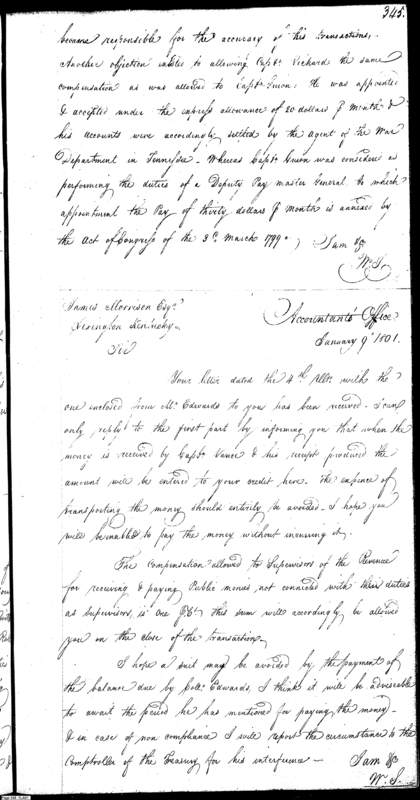 345.
become responsible for the accuracy of his transactions.
Another objection exists to allowing Capt. Vichard the same
compensation as was allowed to Capt. Guion: He was appointed
& accepted under the express allowance of 20 dollars ⅌ Month &
his accounts were accordingly settled by the agent of the War
Department in Tennessee. Whereas Capt. Guion was considered as
performing the duties of a Deputy Pay master General to which
appointment the Pay of thirty dollars ⅌ month is annexed by
the Act of Congress of the 3d. March 1799.) I am &c
W. S.
James Morrison Esqr.
Lexington Kentucky.
Accountants Office
January 9th 1801.
Sir
Your letter dated the 4th Ulto. with the
one inclosed from Mr. Edwards to you has been received. I can
only reply to the first part by informing you that when the
money is received by Capt. Vance & his receipt produced the
amount will be entered to your credit here. The expence of
transporting the money should entirely be avoided. I hope you
will be enabled to pay the money without incurring it.
The Compensation allowed to Supervisors of the Revenue
for receiving & paying Public monies not connected with their duties
as supervisors, is one ⅌ Ct. this sum will accordingly be allowed
you on the close of the transaction.
I hope a suit may be avoided by the payment of
the balance due by Edwards, I think it will be adviseable
to await the period he has mentioned for paying the money.
& in case of non compliance I will report the circumstance to the
Comptroller of the Treasury for his interference — I am &c
W. S.